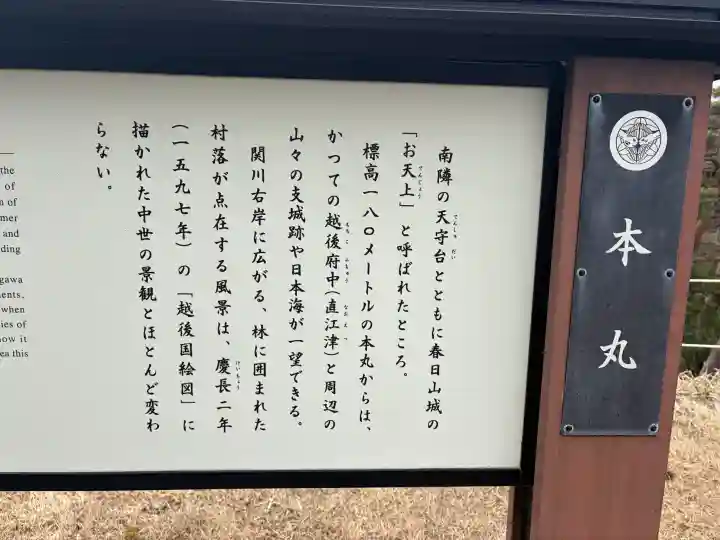 本丸
南隣の天守台とともに春日山城の
「お天上」と呼ばれたところ。
標高一八〇メートルの本丸からは、
かつての越後府中(直江津)と周辺の
山々の支城跡や日本海が一望できる。
関川右岸に広がる、林に囲まれた
村落が点在する風景は、慶長二年
(一五九七年)の「越後国絵図」に
描かれた中世の景観とほとんど変わ
らない。
the
of
of
mer
and
ding
gawa
ents,
when
ies of
ow it
ea this